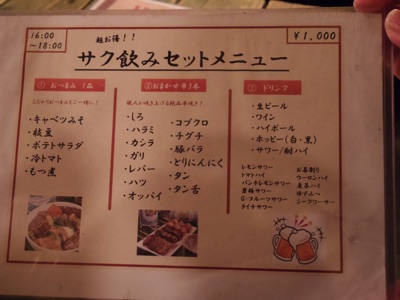 16:00
～18:00
超お得！！
¥1,000
サク飲みセットメニュー
① おつまみ 1品
・キャベツみそ
・枝豆
・ポテトサラダ
・冷トマト
・もつ煮
②おまかせ串3本
職人が焼き上げる絶品串焼き！
・しろ
・ハラミ
・カシラ
・ガリ
・レバー
・ハツ
・オッパイ
・コブクロ
・チグチ
・豚バラ
・とりにんにく
・タン
・タン舌
③ ドリンク
・生ビール
・ワイン
・ハイボール
・ホッピー(白・黒)
・サワー/酎ハイ
レモンサワー
トマトハイ
パンチレモンサワー
青梅サワー
G・フルーツサワー
ライチサワー
お茶割り
ウーロンハイ
緑茶ハイ
シークワーサー